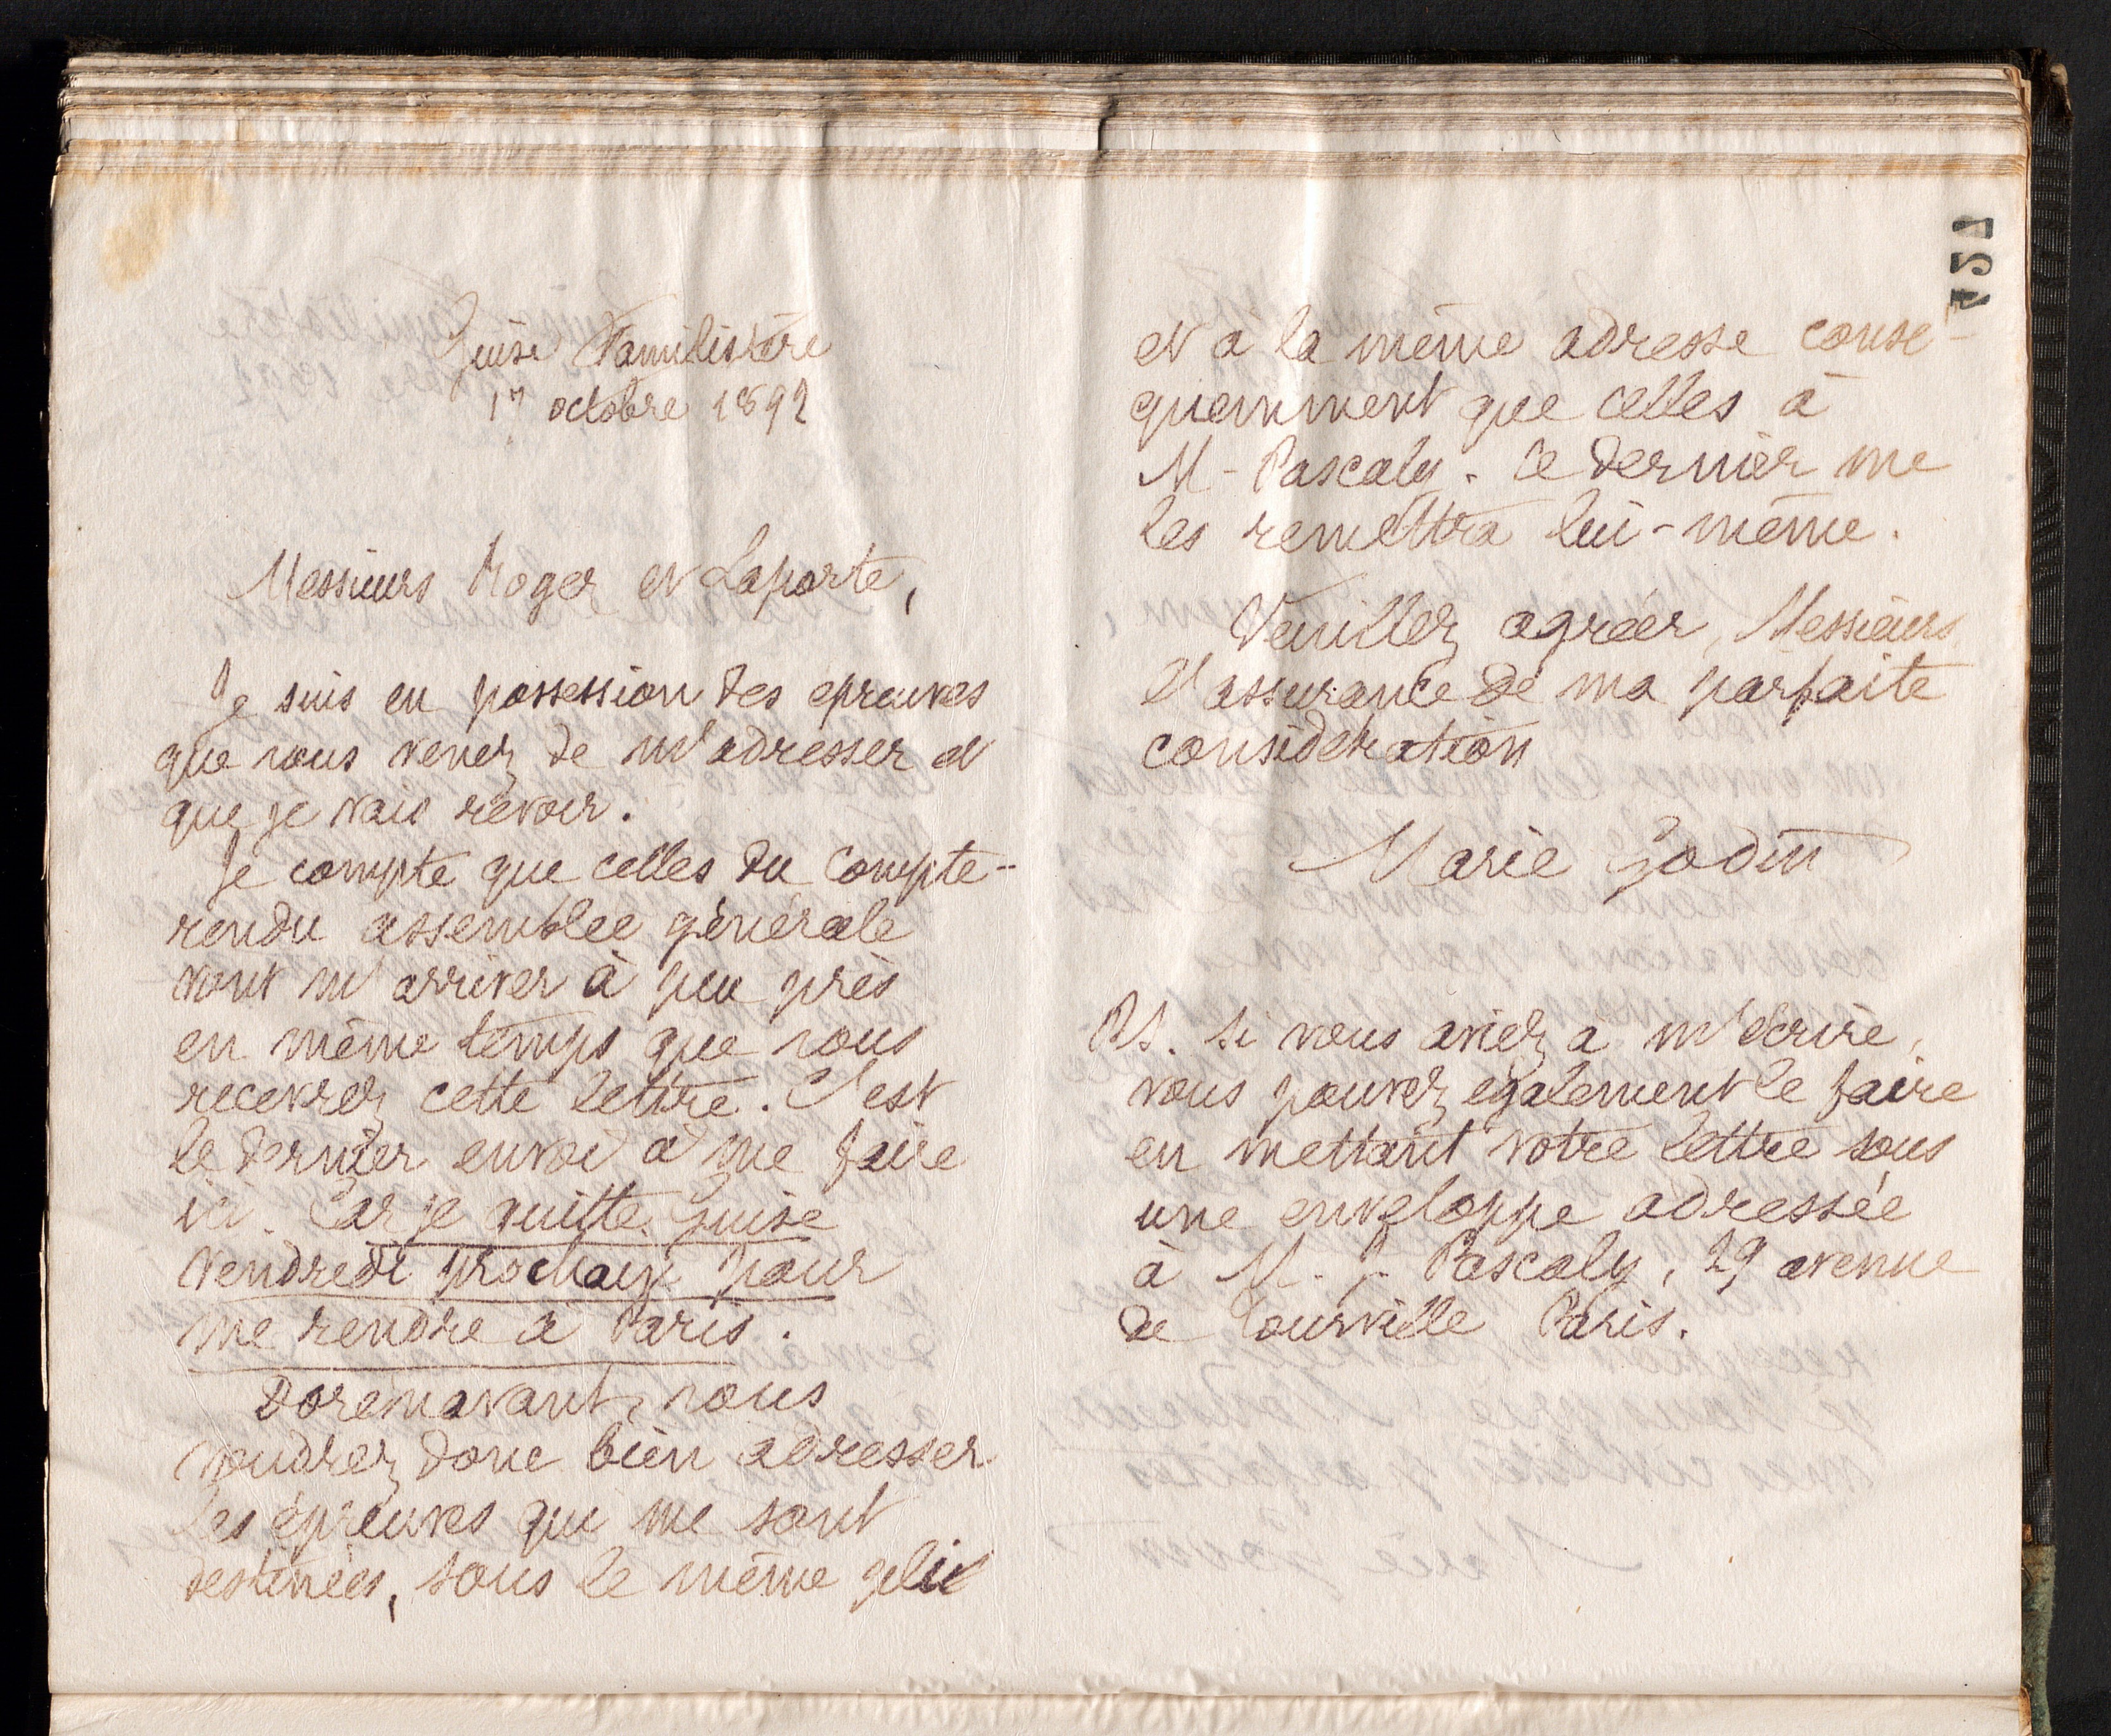 Guise Familistère
17 octobre 1892
Messieurs Roger et Laporte,
Je suis en possession des epreuves
que vous venez de m'adresser et
que je vais revoir.
Je compte que celles du Compte-
rendu assemblée générale
vont m'arriver à peu près
en même temps que vous
recevrez cette lettre. C'est
le dernier envoi à me faire
ici. Car je quitte Guise
Vendredi prochain pour
me rendre à Paris.
Dorénavant, vous
voudrez donc bien adresser
les épreuves qui me sont
destinées, sous le même pli
et à la même adresse conse-
quemment que celles à
M. Pascaly. Ce dernier me
les remettra lui-même.
Veuillez agréer, Messieurs
l'assurance de ma parfaite
considération
Marie Godin
PS. Si vous aviez à m'écrire,
vous pouvez également le faire
en mettant votre lettre sous
une enveloppe adressée
à M. J. Pascaly, 29 avenue
de Tourville Paris.